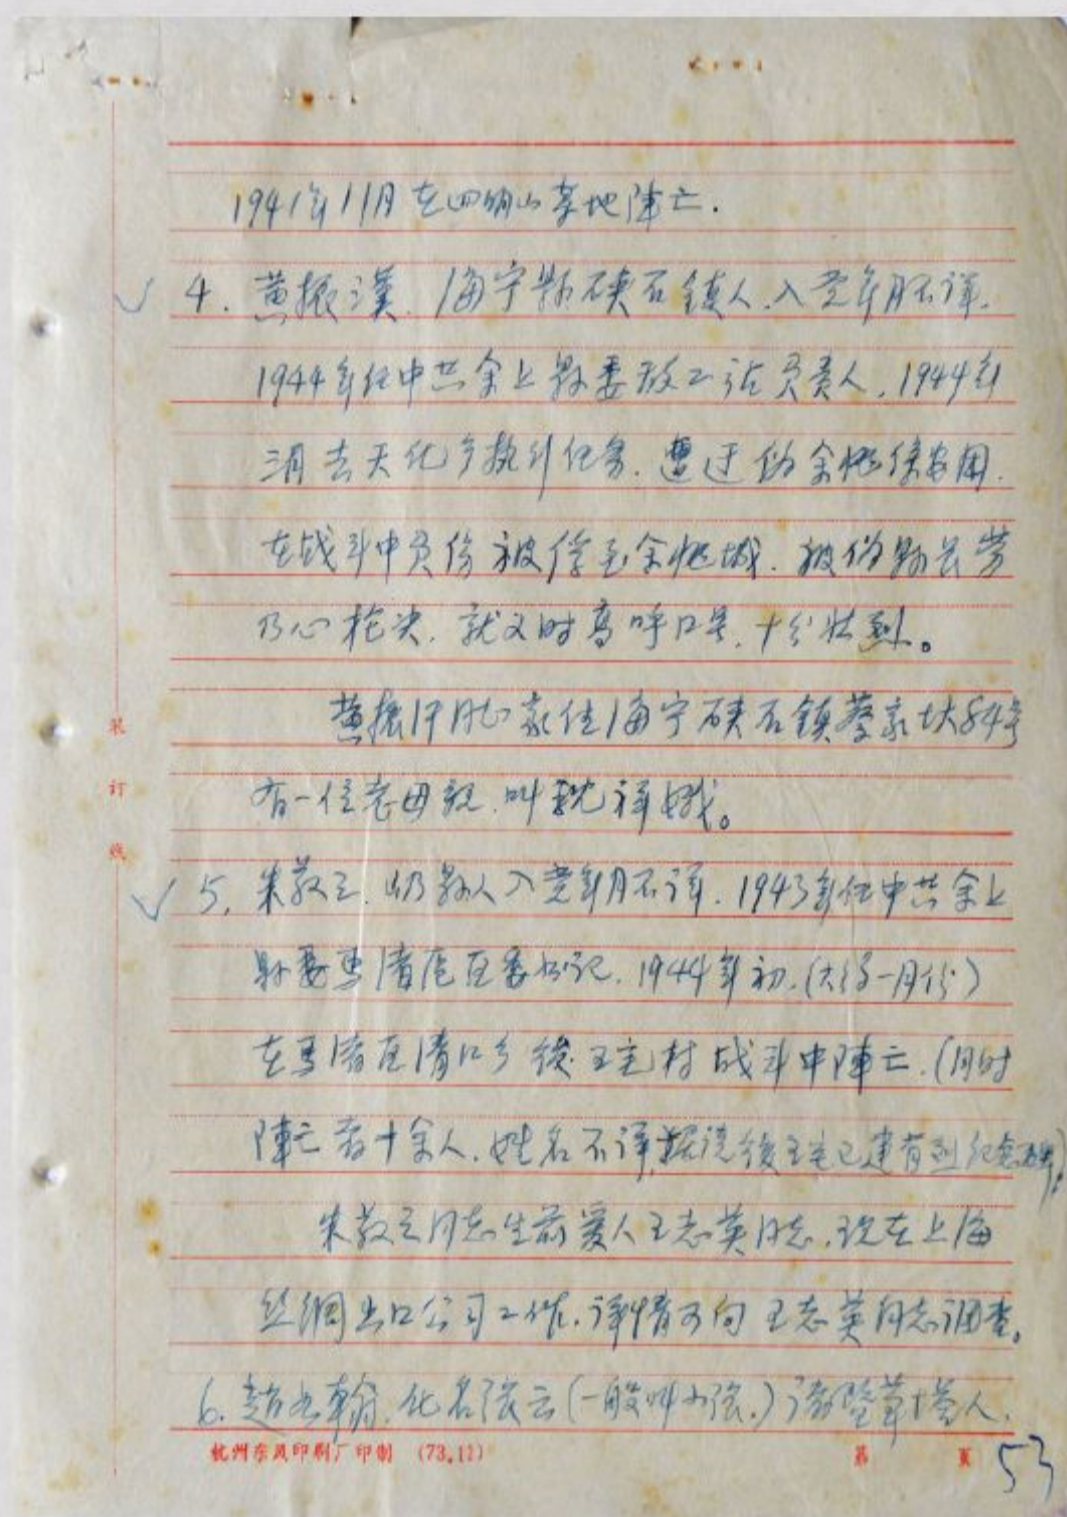 1941年11月在四明山某地陣亡.
✓ 4. 黄振漢. 海宁縣硖石鎮人.入党年月不详.
1944年任中共余上縣委政工 负责人. 1944年
三月去天化乡执行任务. 遭 伪余姚保安 .
在战斗中负伤被俘至余姚城. 被伪縣长劳
乃心枪决. 就义时高呼口号, 十分壮烈。
黄振 同志家住海宁硖石鎮蔡家 84号
有一位老母親. 叫沈祥娥。
✓ 5. 朱敖 . 縣人入党年月不详. 1943年任中共余上
縣委馬渚 区委书记. 1944年初.(大约一月份)
在馬渚区渚口乡後王宅村战斗中陣亡.(同时
陣亡有十余人. 姓名不详,据说後王宅已建有烈 纪念碑)。
朱敖 同志生前爱人王志英同志. 现在上海
丝綢出口公司工作. 详情可向王志英同志调查。
6. 赵 翰. 化名張云(一般叫小張.) 诸暨草塔人.
装
订
线
杭州东风印刷厂印制 (73.12)
第 页 53